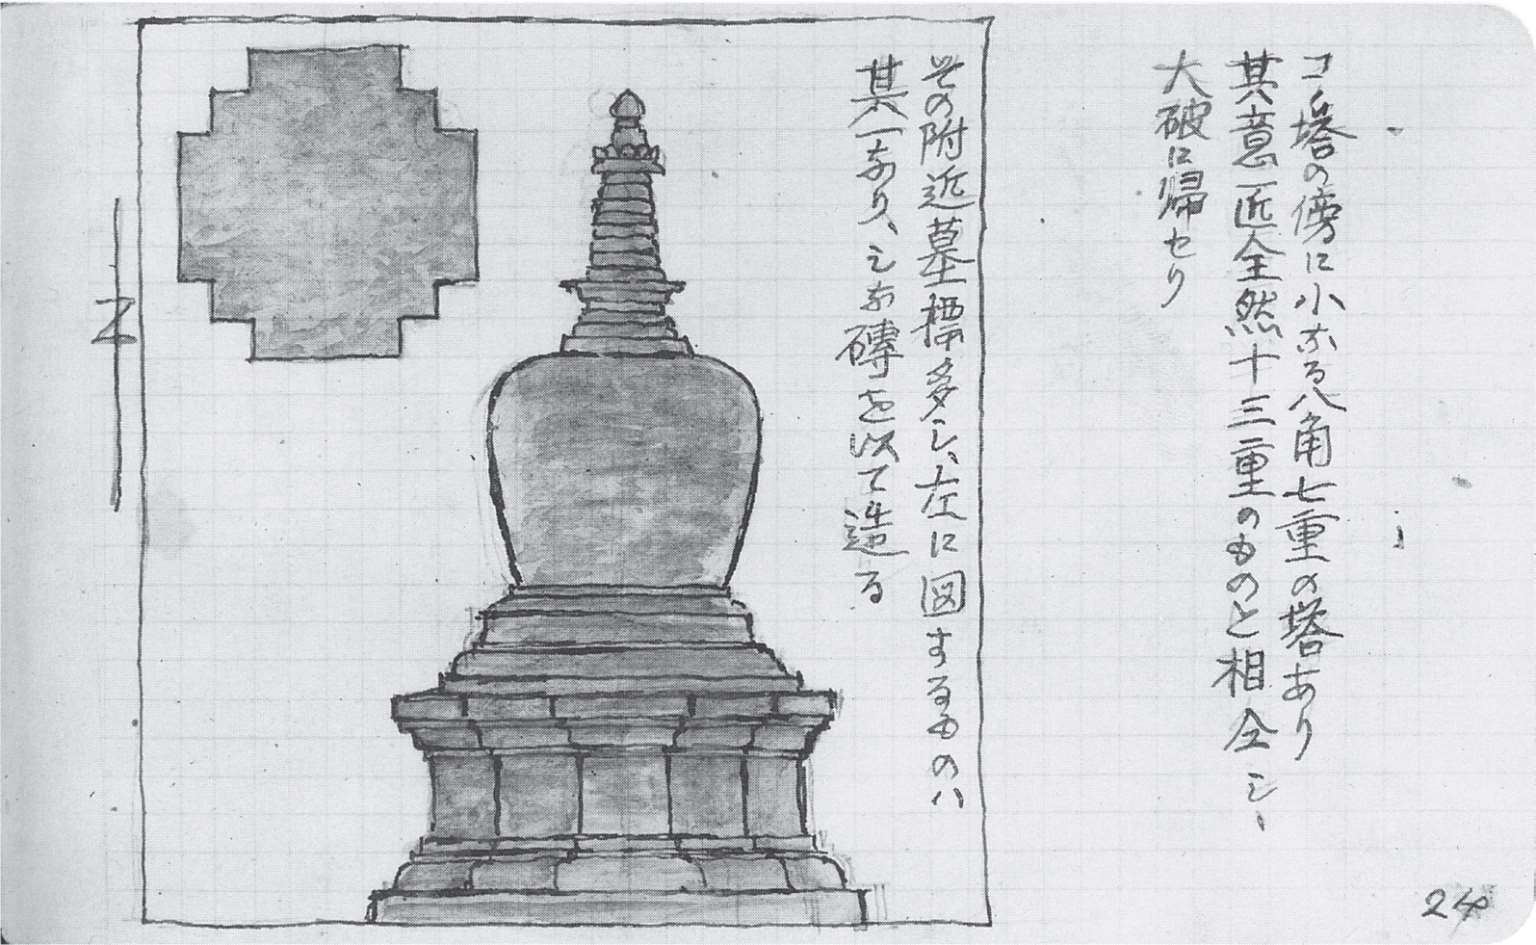 コノ塔の傍に小なる八角七重の塔あり
其意匠全然十三重のものと相仝シ、
大破に帰セリ
その附近墓標多シ、左に図するものハ
其一なり、シな磚を以て造る
24